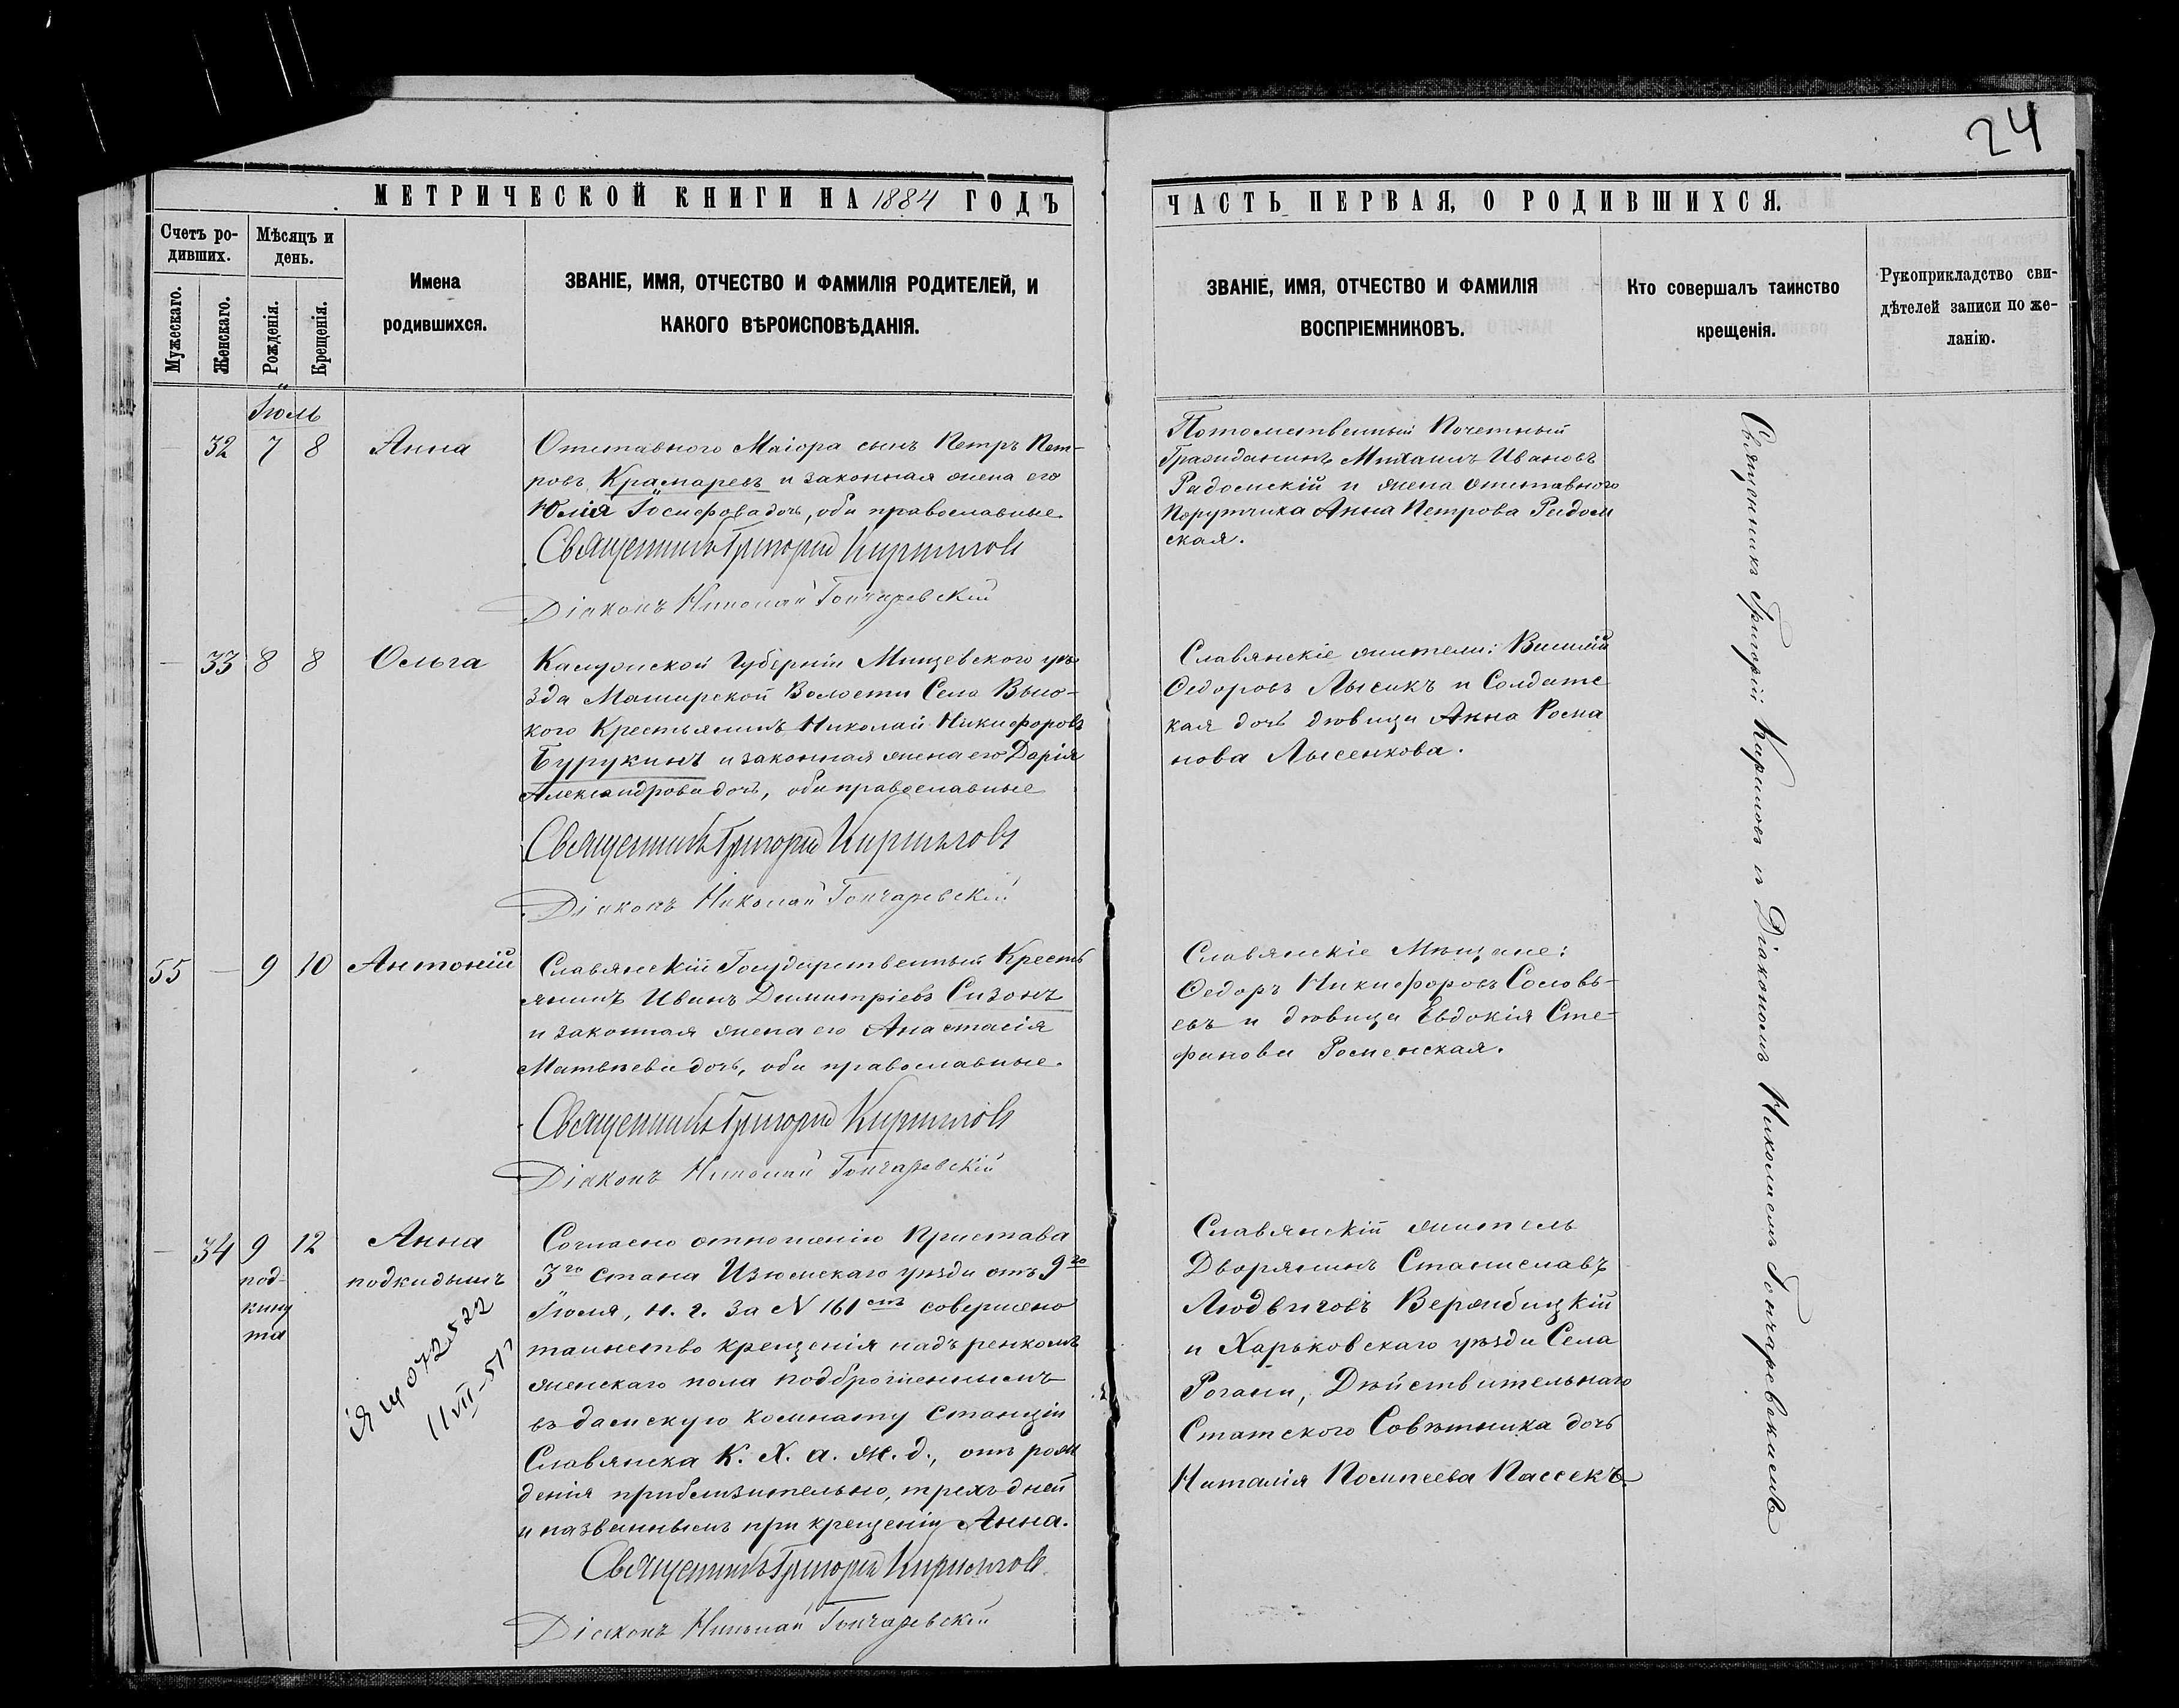 24
МЕТРИЧЕСКОЙ КНИГИ НА 1884 ГОДЪ
ЧАСТЬ ПЕРВАЯ, О РОДИВШИХСЯ.
Счетъ ро-
дившихъ.
Мѣсяцъ и
день.
Мужескаго.
Женскаго.
Рожденія.
Крещенія.
Имена
родившихся.
ЗВАНІЕ, ИМЯ, ОТЧЕСТВО И ФАМИЛІЯ РОДИТЕЛЕЙ, И
КАКОГО ВѢРОИСПОВѢДАНІЯ.
ЗВАНІЕ, ИМЯ, ОТЧЕСТВО И ФАМИЛІЯ
ВОСПРІЕМНИКОВЪ.
Кто совершалъ таинство
крещенія.
Рукоприкладство сви-
дѣтелей записи по же-
ланію.
Іюль
— 32 7 8 Анна
Отставного Маіора сынъ Петръ Пет-
ровъ Крамаревъ и законная жена его
Юлія Іосифова дочь, оба православные
Священникъ Григорій Кирилловъ
Діаконъ Николай Гончаревскій
Потомственный Почетный
Гражданинъ Михаилъ Ивановъ
Радомскій и жена отставного
Порутчика Анна Петрова Радом
ская.
— 33 8 8 Ольга
Калужской Губерніи Мищевского уѣ-
зда Маширской Волости Села Высо-
кого Крестьянинъ Николай Никифоровъ
Бурукинъ и законная жена его Дарія
Александрова дочь, оба православные
Священникъ Григорій Кирилловъ
Діаконъ Николай Гончаревскій
Славянскіе жители: Василій
Федоровъ Лысикъ и Солдатс
кая дочь дѣвица Анна Рома
нова Лысенкова.
55 — 9 10 Антоній
Славянскій Государственный Кресть
янинъ Иванъ Димитріевъ Сизонъ
и законная жена его Анастасія
Матвѣева дочь, оба православные.
Священникъ Григорій Кирилловъ
Діаконъ Николай Гончаревскій
Славянскіе Мѣщане:
Федоръ Никифоровъ Соловь-
евъ и дѣвица Евдокія Сте-
фанова Роменская.
— 34 9 12 Анна
под-
кину
та
подкидышъ
11 VII-51
Согласно отношенію Пристава
3го Стана Изюмскаго уѣзда отъ 9го
Іюля, н. г. За N 161ствъ совершено
таинство крещенія надъ ренкомъ
женскаго пола подброшеннымъ
въ дамскую комнату Станціи
Славянска К. Х. А. ж. д., отъ рож
денія приблизительно, трехъ дней
и названнымъ при крещеніи Анна.
Священникъ Григорій Кирилловъ
Діаконъ Николай Гончаревскій
Славянскій житель
Дворянинъ Станиславъ
Людвиговъ Вержбицкій
и Харьковскаго уѣзда Села
Рогани, Дѣйствительнаго
Статского Совѣтника дочь
Наталія Помпеева Пассекъ.
Священникъ Григорій Кириловъ съ Діакономъ Николаемъ Гончаревскимъ